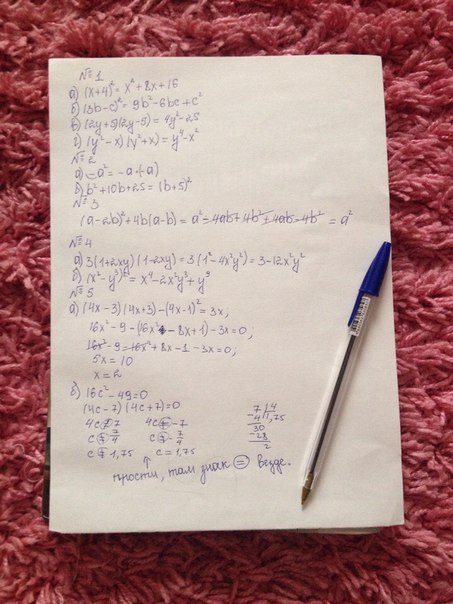 № 1
а) (x+4)² = x² + 8x + 16
б) (3b-c)² = 9b² - 6bc + c²
в) (2y+5)(2y-5) = 4y² - 25
г) (y²-x)(y²+x) = y⁴ - x²
№ 2
б) b² + 10b + 25 = (b+5)²
№ 3
(a-2b)² + 4b(a-b) = a² - 4ab + 4b² + 4ab - 4b² = a²
№ 4
а) 3(1+2xy)(1-2xy) = 3(1² - 4x²y²) = 3 - 12x²y²
б) (x² - y³)² = x⁴ - 2x²y³ + y⁹
№ 5
а) (4x-3)(4x+3) - (4x-1)² = 3x,
16x² - 9 - (16x² - 8x + 1) - 3x = 0;
16x² - 9 - 16x² + 8x - 1 - 3x = 0;
5x = 10
x = 2
б) 16c² - 49 = 0
(4c-7)(4c+7) = 0
4c = 7 4c = -7
c = 7/4 c = -7/4
c = 1,75 c = 1,75
7 4
4 1,75
30
28
2
прости, там знак = везде.